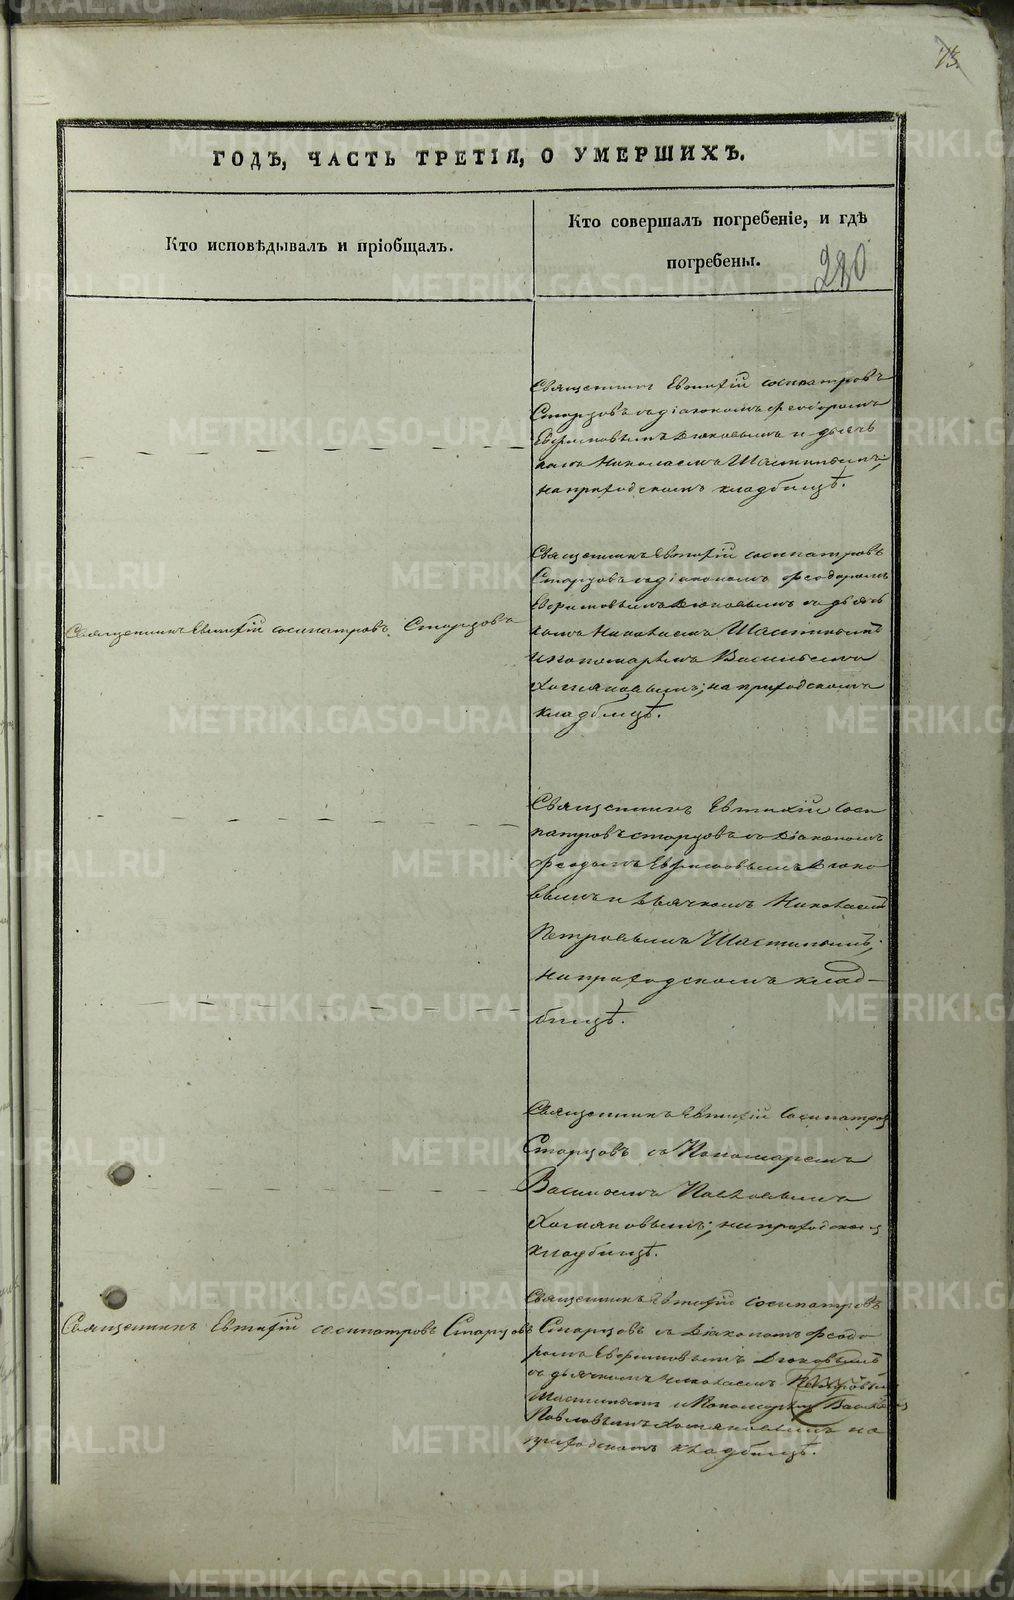 73.
ГОДЪ, ЧАСТЬ ТРЕТІЯ, О УМЕРШИХЪ.
Кто исповѣдывалъ и пріобщалъ.
Кто совершалъ погребеніе, и гдѣ
погребены.
280
Священникъ Евтихій Сосипатровъ
Старцовъ съ діакономъ Феодоромъ
Евфимовымъ Дюковымъ и дьяч
комъ Николаемъ Шастинымъ;
на приходскомъ кладбищѣ.
Священникъ Евтихій Сосипатровъ Старцовъ
Священникъ Евтихій Сосипатровъ
Старцовъ съ діакономъ Феодоромъ
Евфимовымъ Дюковымъ съ дьяч
комъ Николаемъ Шастинымъ
и пономаремъ Василіемъ
Хомяковымъ; на приходскомъ
кладбищѣ.
Священникъ Евтихій Соси
патровъ Старцовъ съ Діакономъ
Феодомъ Евфимовымъ Дюко
вымъ и Дьячкомъ Николаемъ
Петровымъ Шастинымъ;
на приходскомъ клад-
бищѣ.
Священникъ Евтихій Сосипатров
Старцовъ съ Пономаремъ
Василіемъ Павловымъ
Хомяковымъ; на приходском
кладбищѣ.
Священникъ Евтихій Сосипатровъ Старцовъ
Священникъ Евтихій Сосипатровъ
Старцовъ съ Діакономъ Феодо
ромъ Евфимовымъ Дюковымъ
съ дьячкомъ Николаемъ Петровым
Шастинымъ и Пономаремъ Василіем
Павловымъ Хомяковымъ на
приходскомъ кладбищѣ.
METRIKI.GASO-URAL.RU